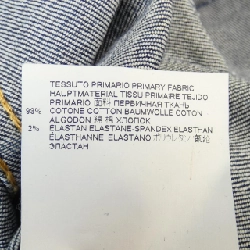 TESSUTO PRIMARIO PRIMARY FABRIC
HAUPTMATERIAL TISSU PRIMAIRE TEJIDO
PRIMARIO 面料 ПЕРВИЧНАЯ ТКАНЬ
98% COTONE COTTON BAUMWOLLE COTON
ALGODON 綿 棉 ХЛОПОК
2% ELASTAN ELASTANE-SPANDEX ELASTHAN
ELASTHANNE ELASTANO ポリウレタン
ЭЛАСТАН